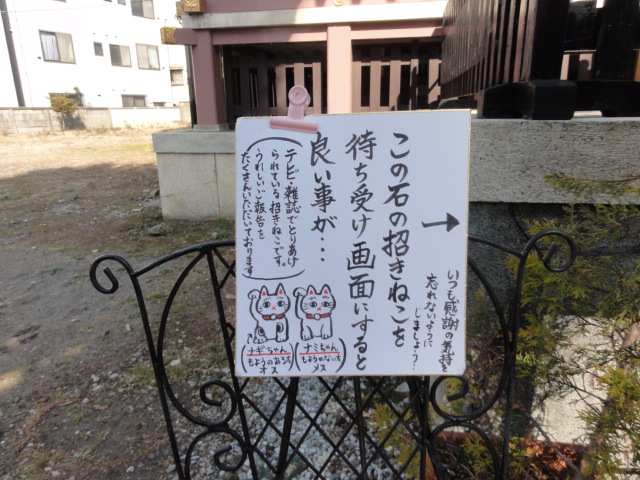 この石の招きねこを
待ち受け画面にすると
良い事が・・・
いつも感謝の気持を
忘れないように
しましょう…
テレビ・雑誌でとりあげ
られている招きねこです。
うれしいご報告を
たくさんいただいております
ナギちゃん
もようのある方
オス
ナミちゃん
もようのない方
メス